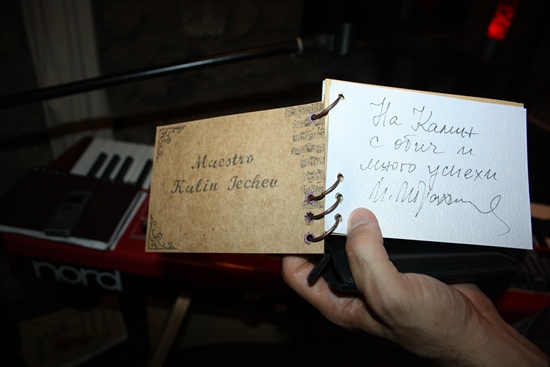 Maestro
Kalin Iechev
На Калин
с обич и
много успехи
nord